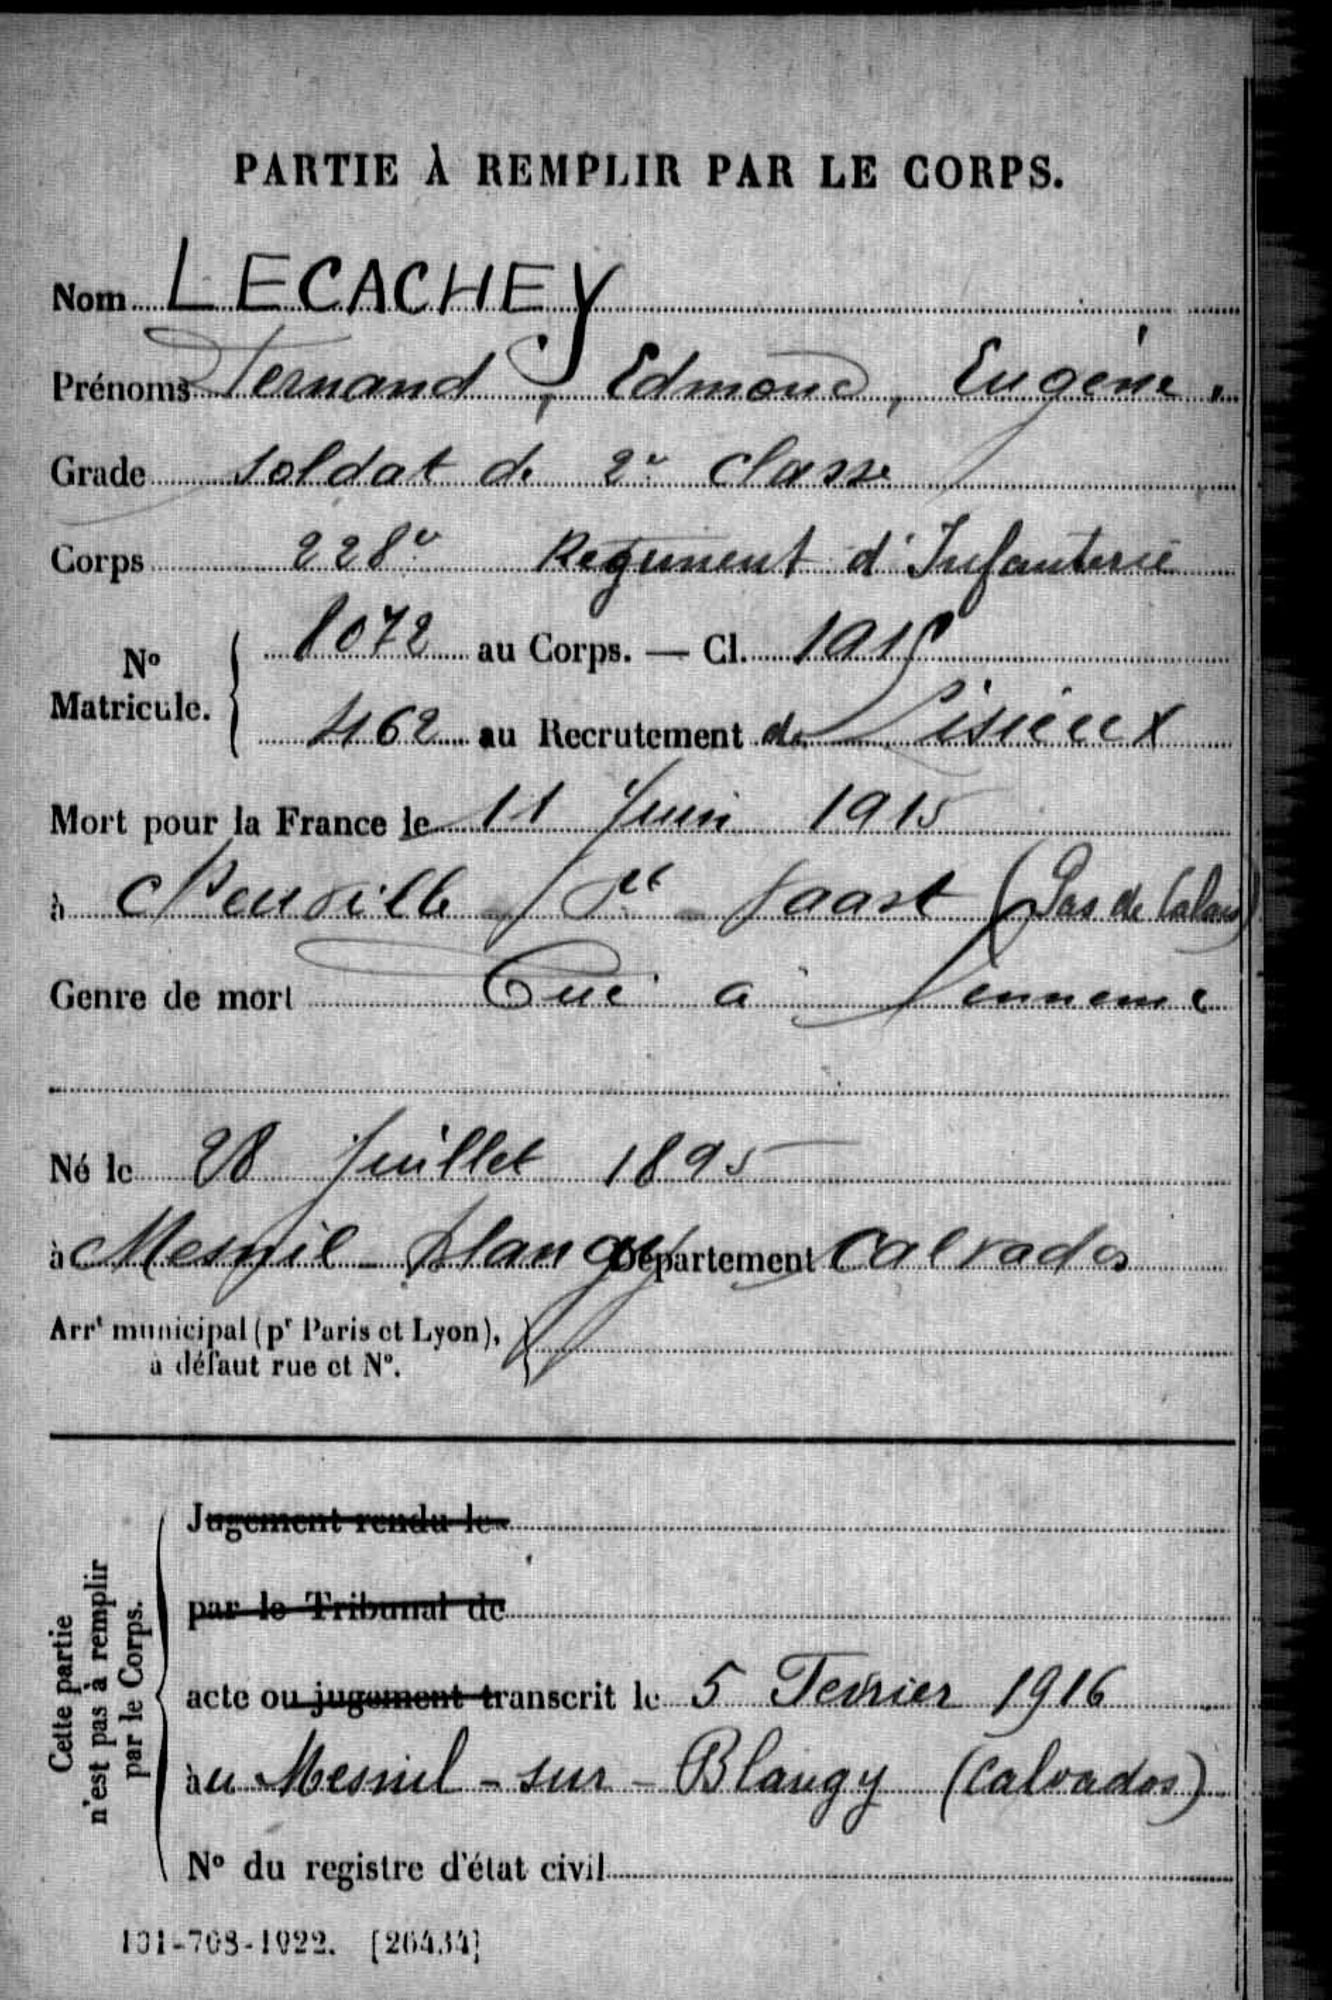 PARTIE À REMPLIR PAR LE CORPS.
Nom LECACHEY
Prénoms Fernand, Edmond, Eugène.
Grade soldat de 2e classe
Corps 228e Régiment d'Infanterie
No Matricule. 8072 au Corps. — Cl. 1915
462 au Recrutement de Lisieux
Mort pour la France le 11 Juin 1915
à Neuville St Vaast (Pas de Calais)
Genre de mort Tué à l'ennemi
Né le 28 Juillet 1895
à Mesnil-Blangy Département Calvados
Arrt municipal (pr Paris et Lyon),
à défaut rue et No.
Cette partie
n'est pas à remplir
par le Corps.
Jugement rendu le
par le Tribunal de
acte ou jugement transcrit le 5 Fevrier 1916
àu Mesnil-sur-Blangy (Calvados)
No du registre d'état civil
101-708-1922. [26434]